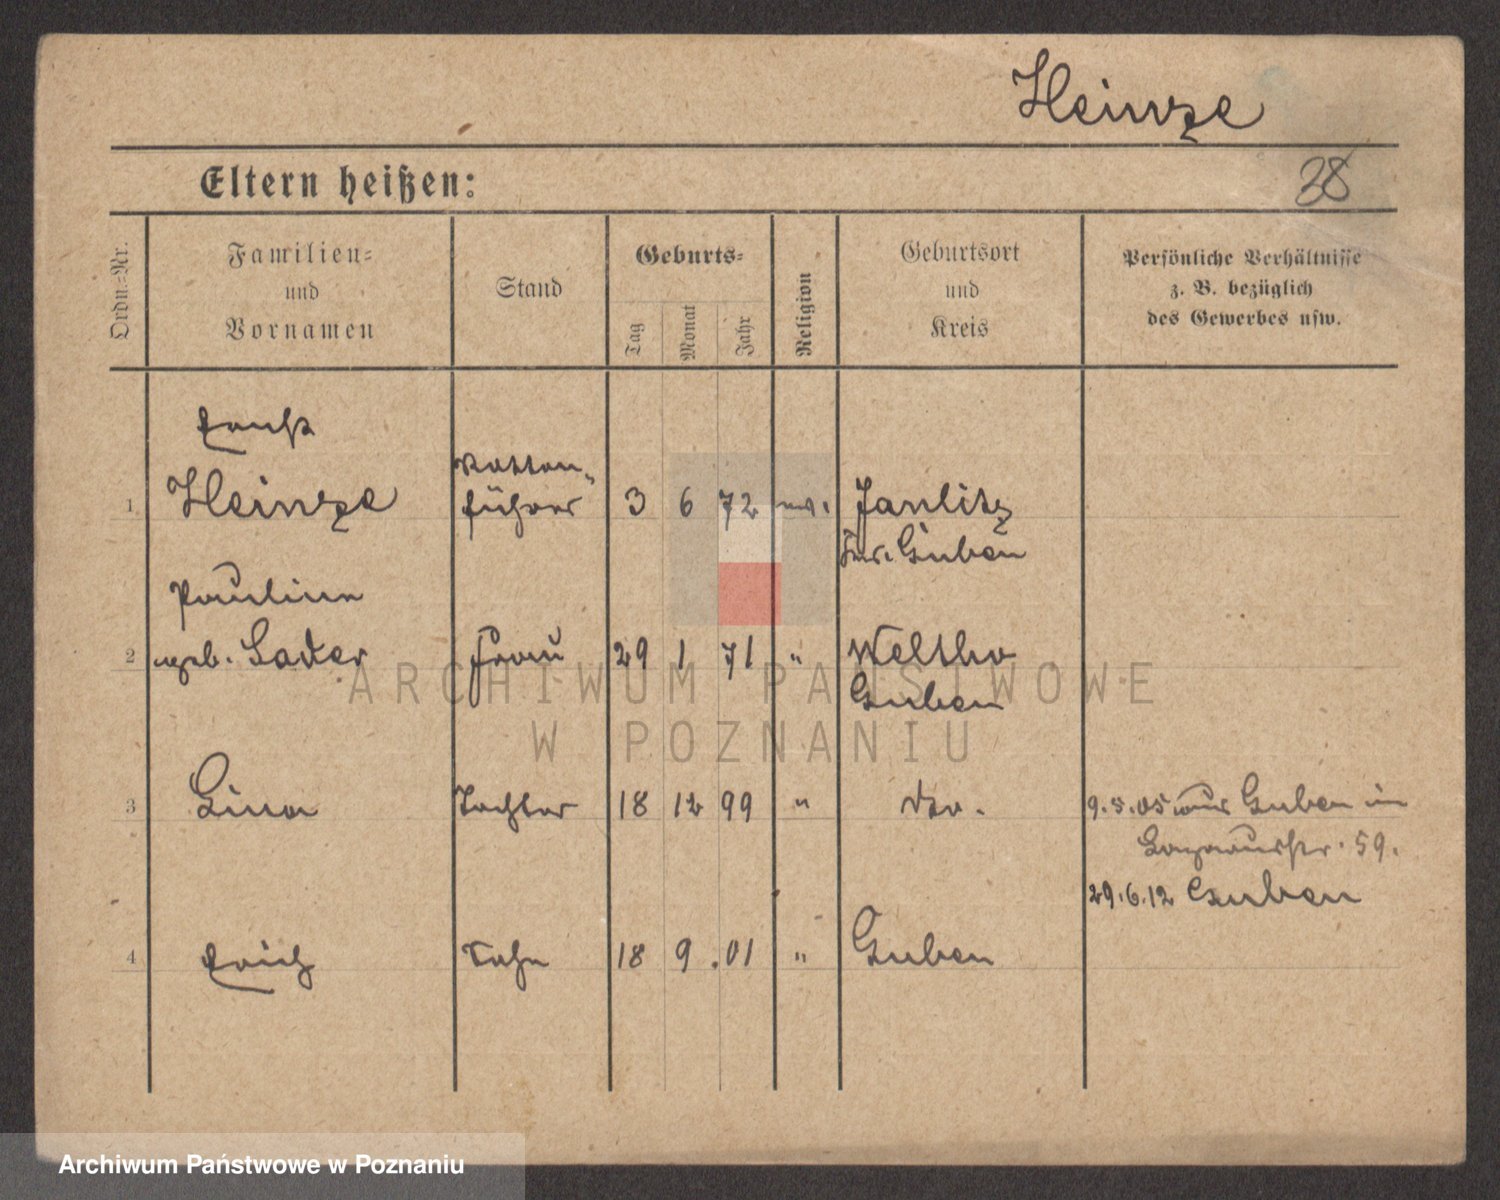 Heinze
Eltern heißen:
28
Ordn.=Nr.
Familien=
und
Vornamen
Stand
Geburts=
Tag
Monat
Jahr
Religion
Geburtsort
und
Kreis
Persönliche Verhältnisse
z. B. bezüglich
des Gewerbes usw.
Ernst
1 Heinze
Rotten-
führer
3 6 72 ev. Jaulitz
Krs. Guben
Pauline
2 geb. Frau 29 1 71 " Weltho
Guben
3 Lina Tochter 18 12 99 " dto. 9.5.05 aus Guben in
59.
29.6.12 Guben
4 Erich Sohn 18 9 .01 " Guben
ARCHIWUM PAŃSTWOWE
W POZNANIU
Archiwum Państwowe w Poznaniu